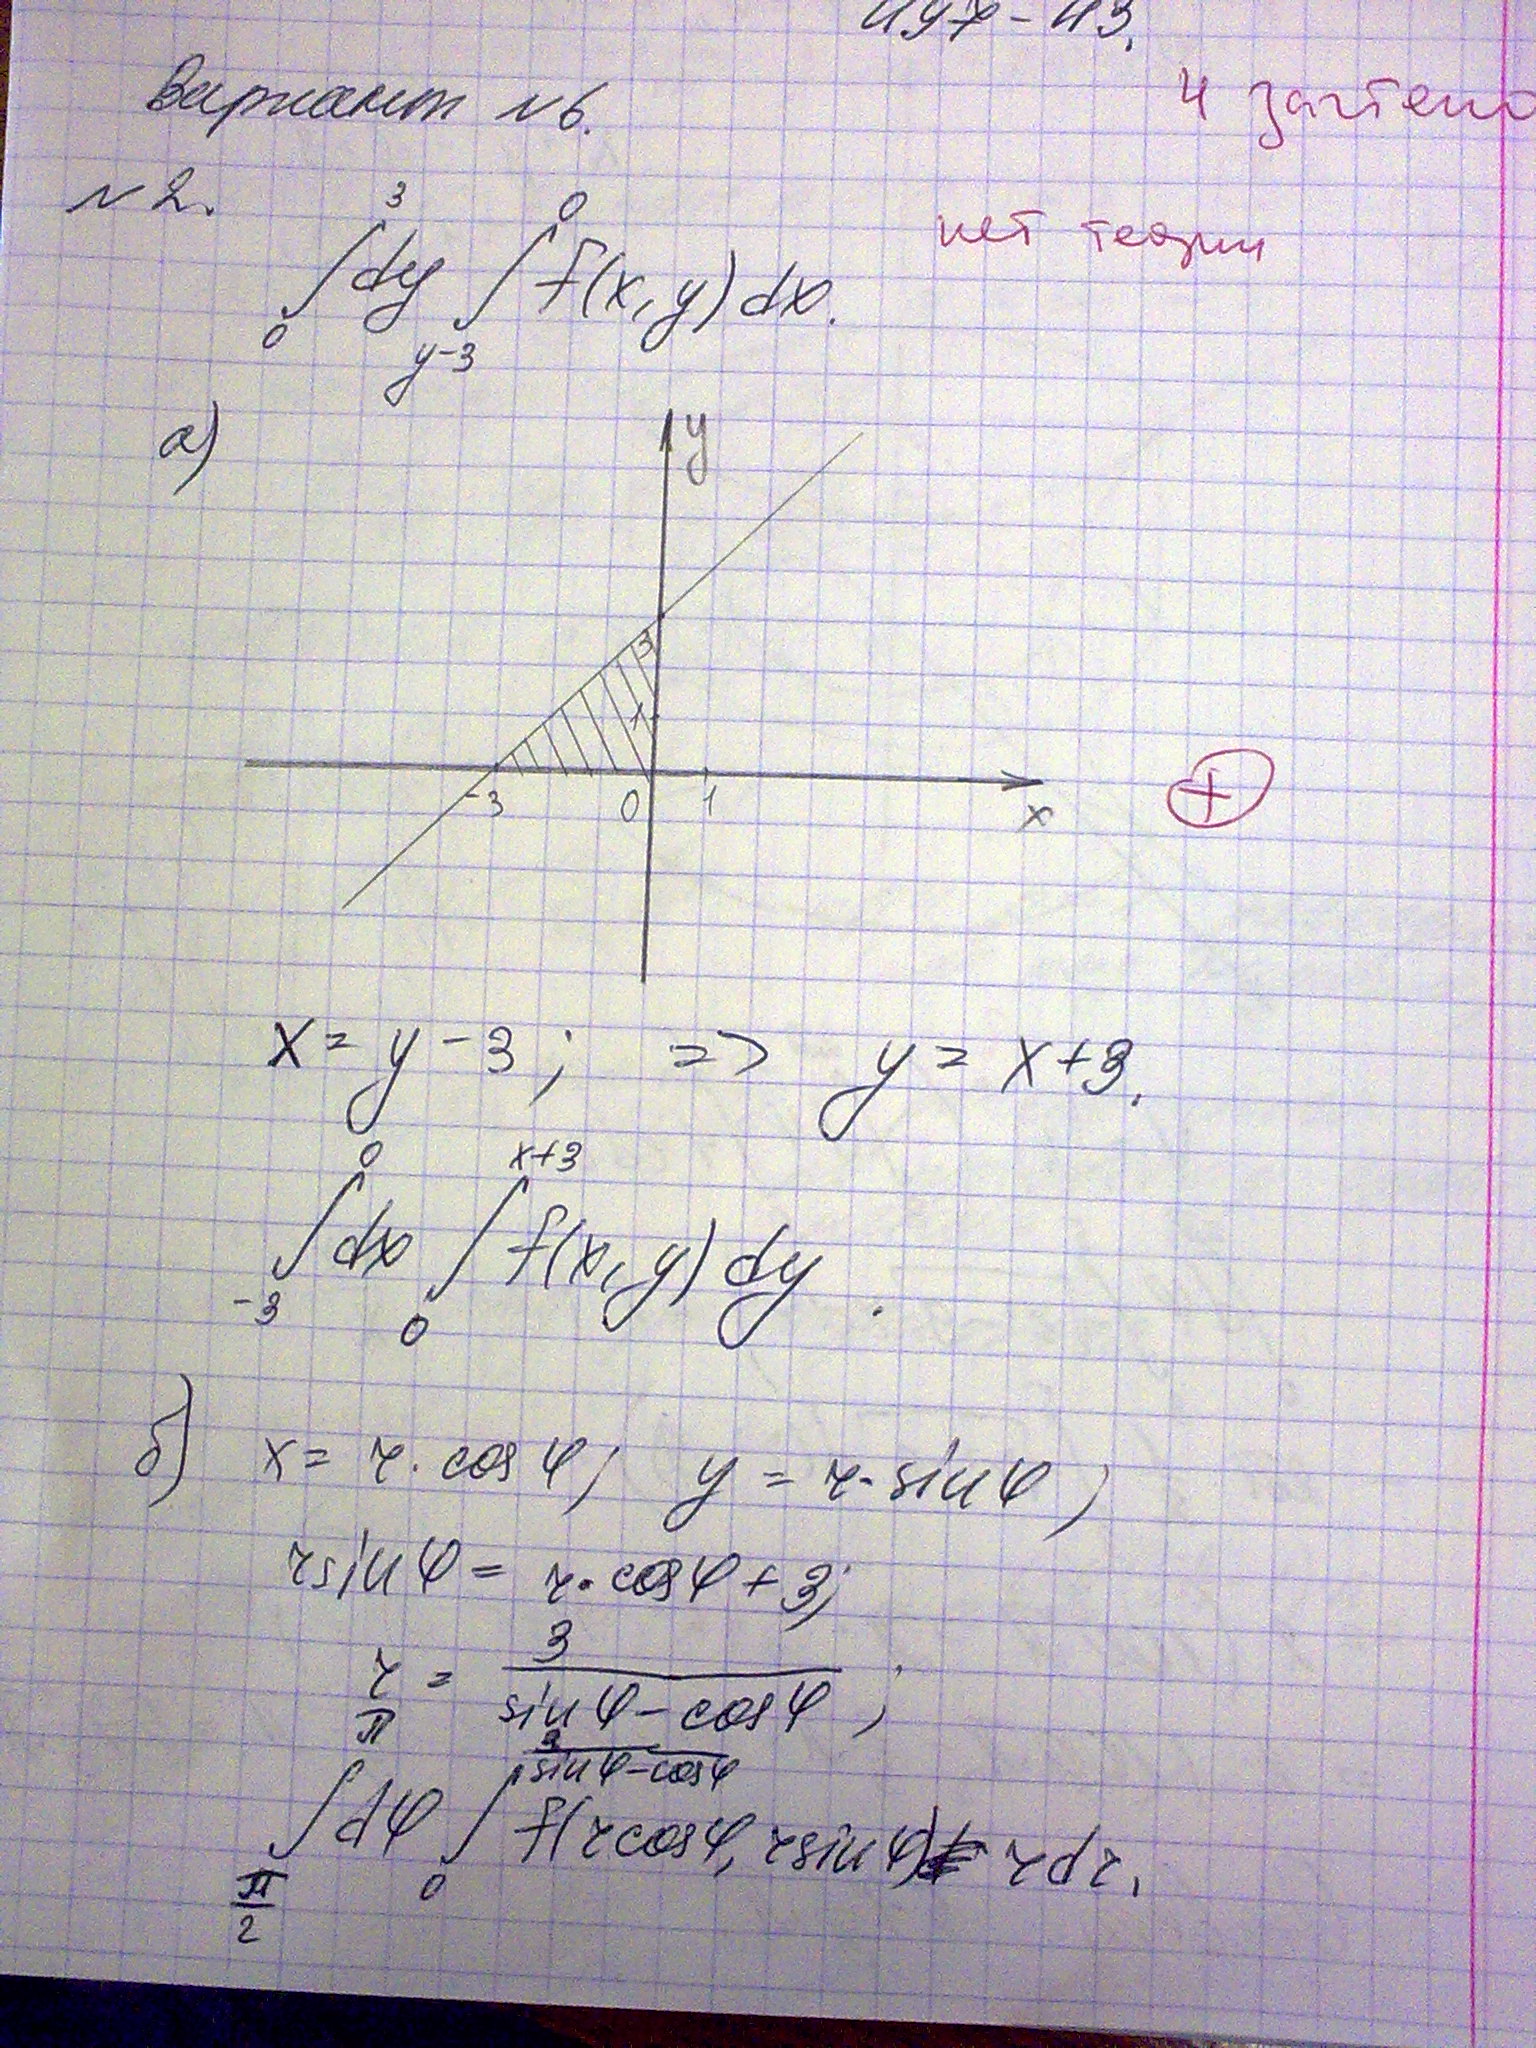 4 зачтено
Вариант №6.
№2.
нет теории
∫₀³ dy ∫_{y-3}^0 f(x,y)dx.
а)
y
3
1
-3 0 1 x
+
x = y - 3; => y = x+3.
∫_{-3}^0 dx ∫_0^{x+3} f(x,y)dy.
б) x = r·cosφ; y = r·sinφ;
rsinφ = r·cosφ + 3;
r = 3/(sinφ - cosφ);
∫_{π/2}^π dφ ∫_0^{3/(sinφ-cosφ)} f(rcosφ, rsinφ) rdr.